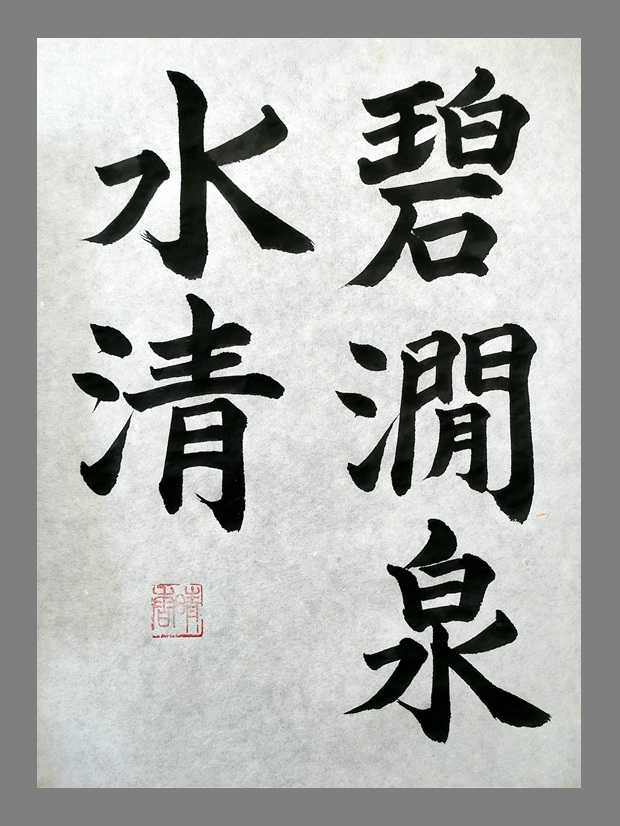 碧澗泉
水清